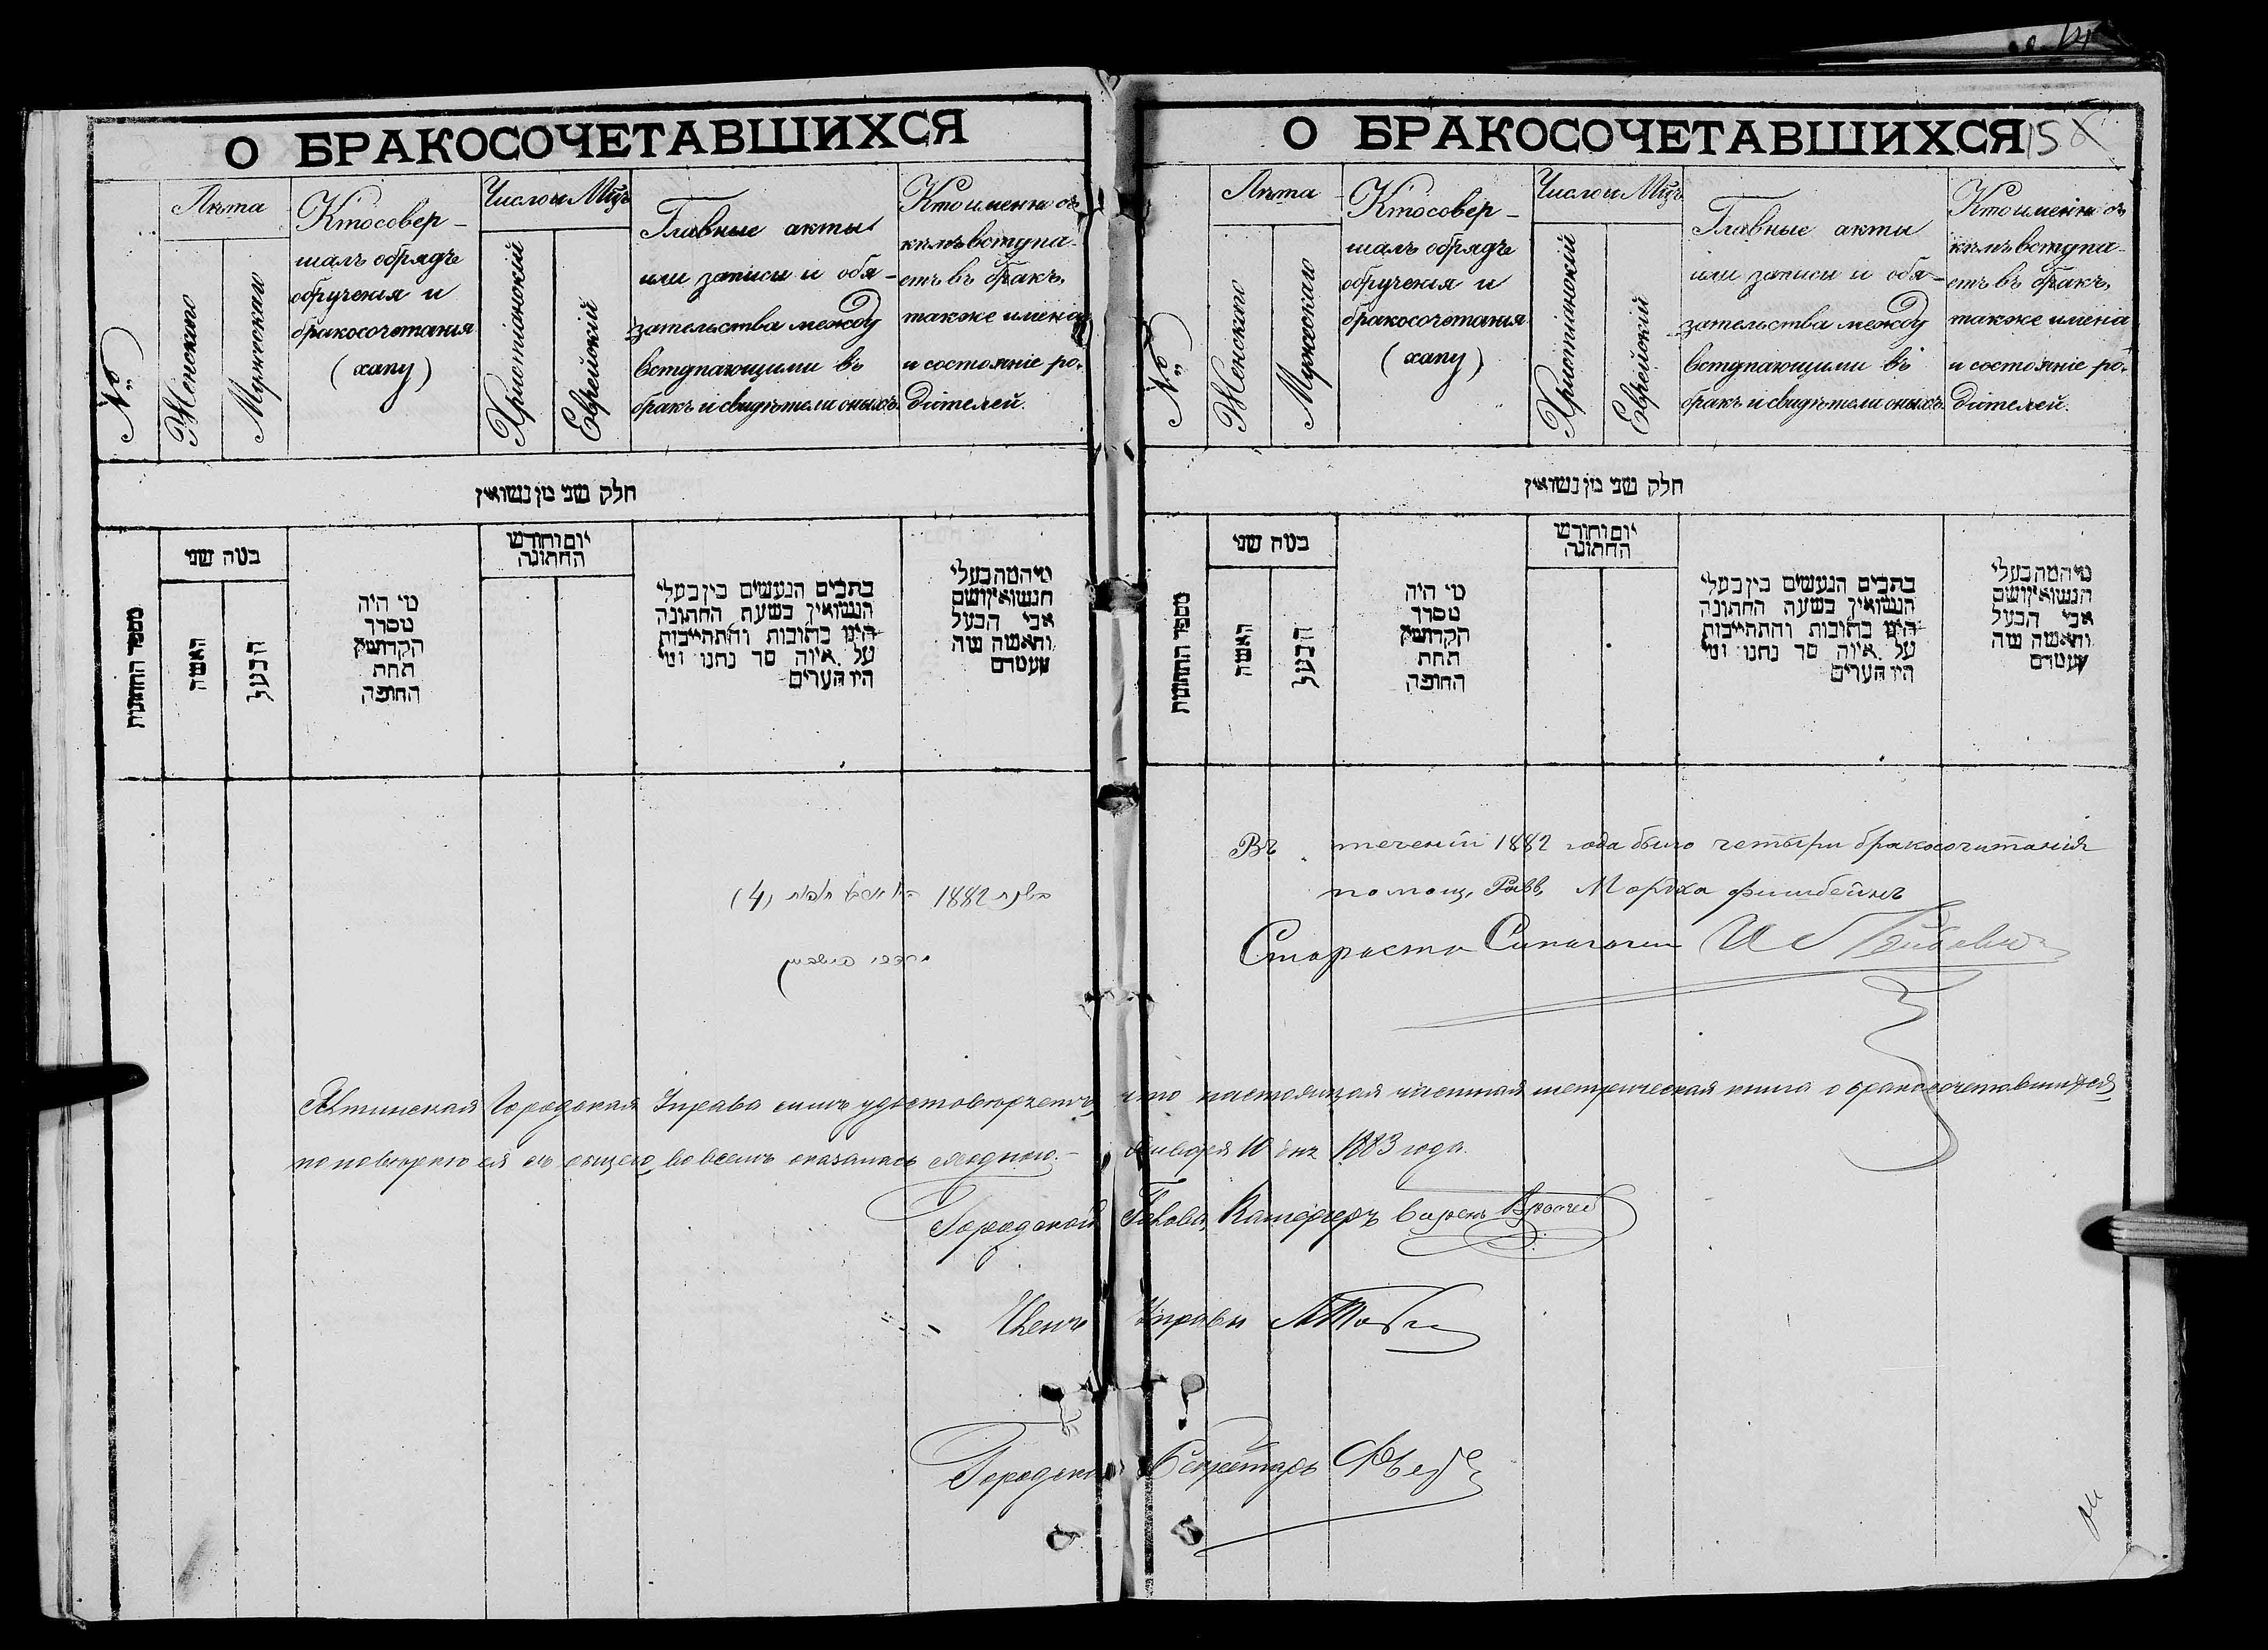 О БРАКОСОЧЕТАВШИХСЯ
№
Лѣта
Женскаго
Мужескаго
Кто совер-
шалъ обрядъ
обрученія и
бракосочетанія
(хапу)
Число и Мцъ
Христіанскій
Еврейскій
Главные акты
или записи и обя-
зательства между
вступающими въ
бракъ и свидѣтели оныхъ.
Кто именно съ
кѣмъ вступа-
етъ въ бракъ,
также имена
и состояніе ро-
дителей.
חלק שני מן נשואין
מספר החתונות
במה שני
האשה
הבעל
מי היה
מסדר
הקדושין
תחת
החופה
יום וחודש
החתונה
כתבים הנעשים בין בעלי
הנשואין בשעת החתונה
היינו כתובות והתחייבות
על איזה סך נתנו ומי
היו העדים
מי המה בעלי
הנשואין ושם
אבי הבעל
והאשה ומה
מעמדם
בשנת 1882 היו ארבע חופות (4)
מרדכי פישביין
О БРАКОСОЧЕТАВШИХСЯ
15
№
Лѣта
Женскаго
Мужескаго
Кто совер-
шалъ обрядъ
обрученія и
бракосочетанія
(хапу)
Число и Мцъ
Христіанскій
Еврейскій
Главные акты
или записи и обя-
зательства между
вступающими въ
бракъ и свидѣтели оныхъ.
Кто именно съ
кѣмъ вступа-
етъ въ бракъ,
также имена
и состояніе ро-
дителей.
חלק שני מן נשואין
מספר החתונות
במה שני
האשה
הבעל
מי היה
מסדר
הקדושין
תחת
החופה
יום וחודש
החתונה
כתבים הנעשים בין בעלי
הנשואין בשעת החתונה
היינו כתובות והתחייבות
על איזה סך נתנו ומי
היו העדים
מי המה בעלי
הנשואין ושם
אבי הבעל
והאשה ומה
מעמדם
Въ теченіи 1882 года было четыри бракосочитанія
помощ. Равв. Мордха Фишбейнъ
Староста Синагоги
Ялтинская Городская Управа симъ удостовѣряетъ, что настоящая шнетрическая книга о бракосочетавшихся,
по повѣркѣ ея съ общею, во всемъ оказалась сходною.- Января 10 дня 1883 года.
Городской Голова, Камергеръ Баронъ Врангель
Членъ Управы
Городской Секретарь